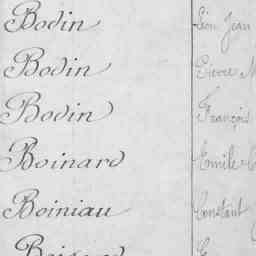 Bodin Léon Jean
Bodin Pierre
Bodin François
Boinard Emile
Boiniau Constant